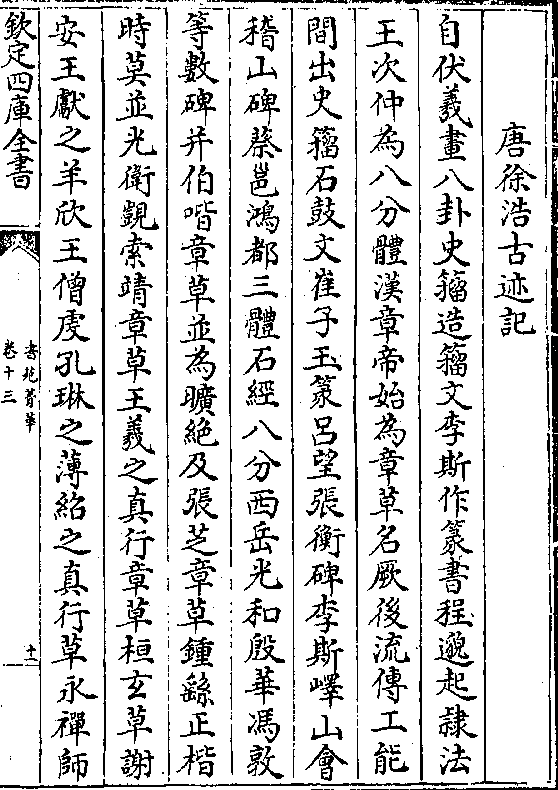 唐徐浩古迹記
自伏羲畫八卦史籀造籀文李斯作篆書程邈起隸法
王次仲為八分體漢章帝始為章草名厥後流傳工能
間出史籀石鼓文崔子玉篆呂望張衡碑李斯嶧山會
稽山碑蔡邕鴻都三體石經八分西岳光和殷華馮敦
等數碑并伯喈章草並為曠絶及張芝章草鍾繇正楷
時莫並光衛覬索靖章草王羲之真行章草桓玄草謝
安王獻之羊欣王僧虔孔琳之薄紹之真行草永禪師
欽定四庫全書
書苑菁華
卷十三
十二